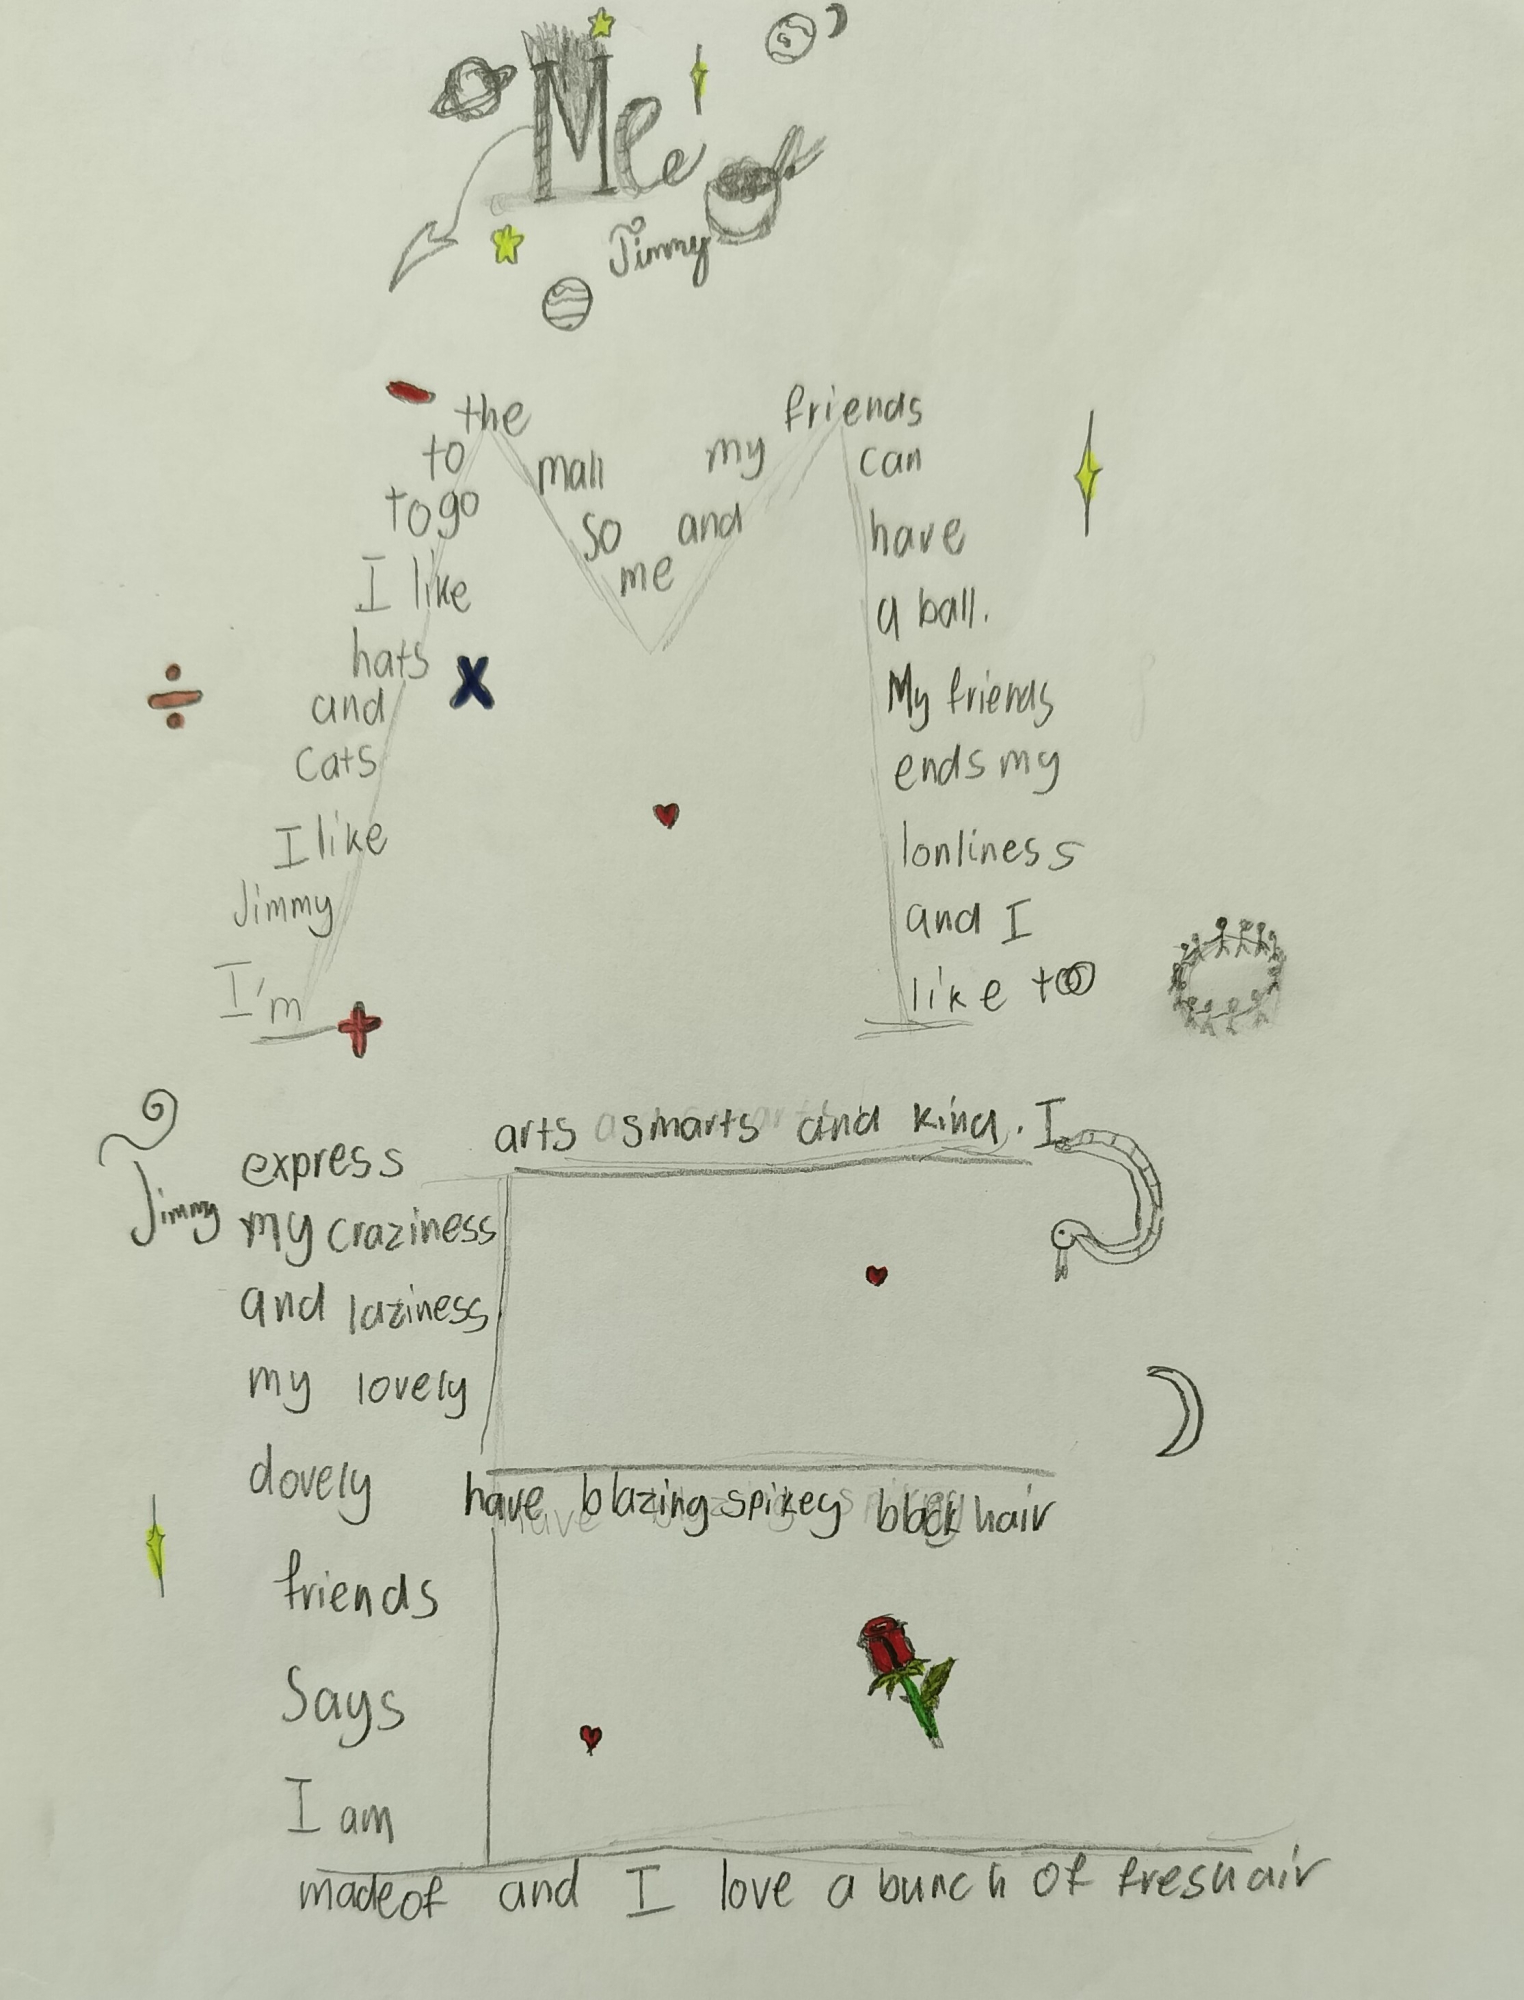 Me
Jimmy
I'm
Jimmy
I like
cats
and
hats
I like
to go
to
the
mall
so
me
and
my
friends
can
have
a ball.
My friends
ends my
lonliness
and I
like to
Jimmy
express
my craziness
and laziness
my lovely
dovely
friends
Says
I am
made of
arts smarts and kind. I
have blazing spikey black hair
and I love a bunch of fresh air